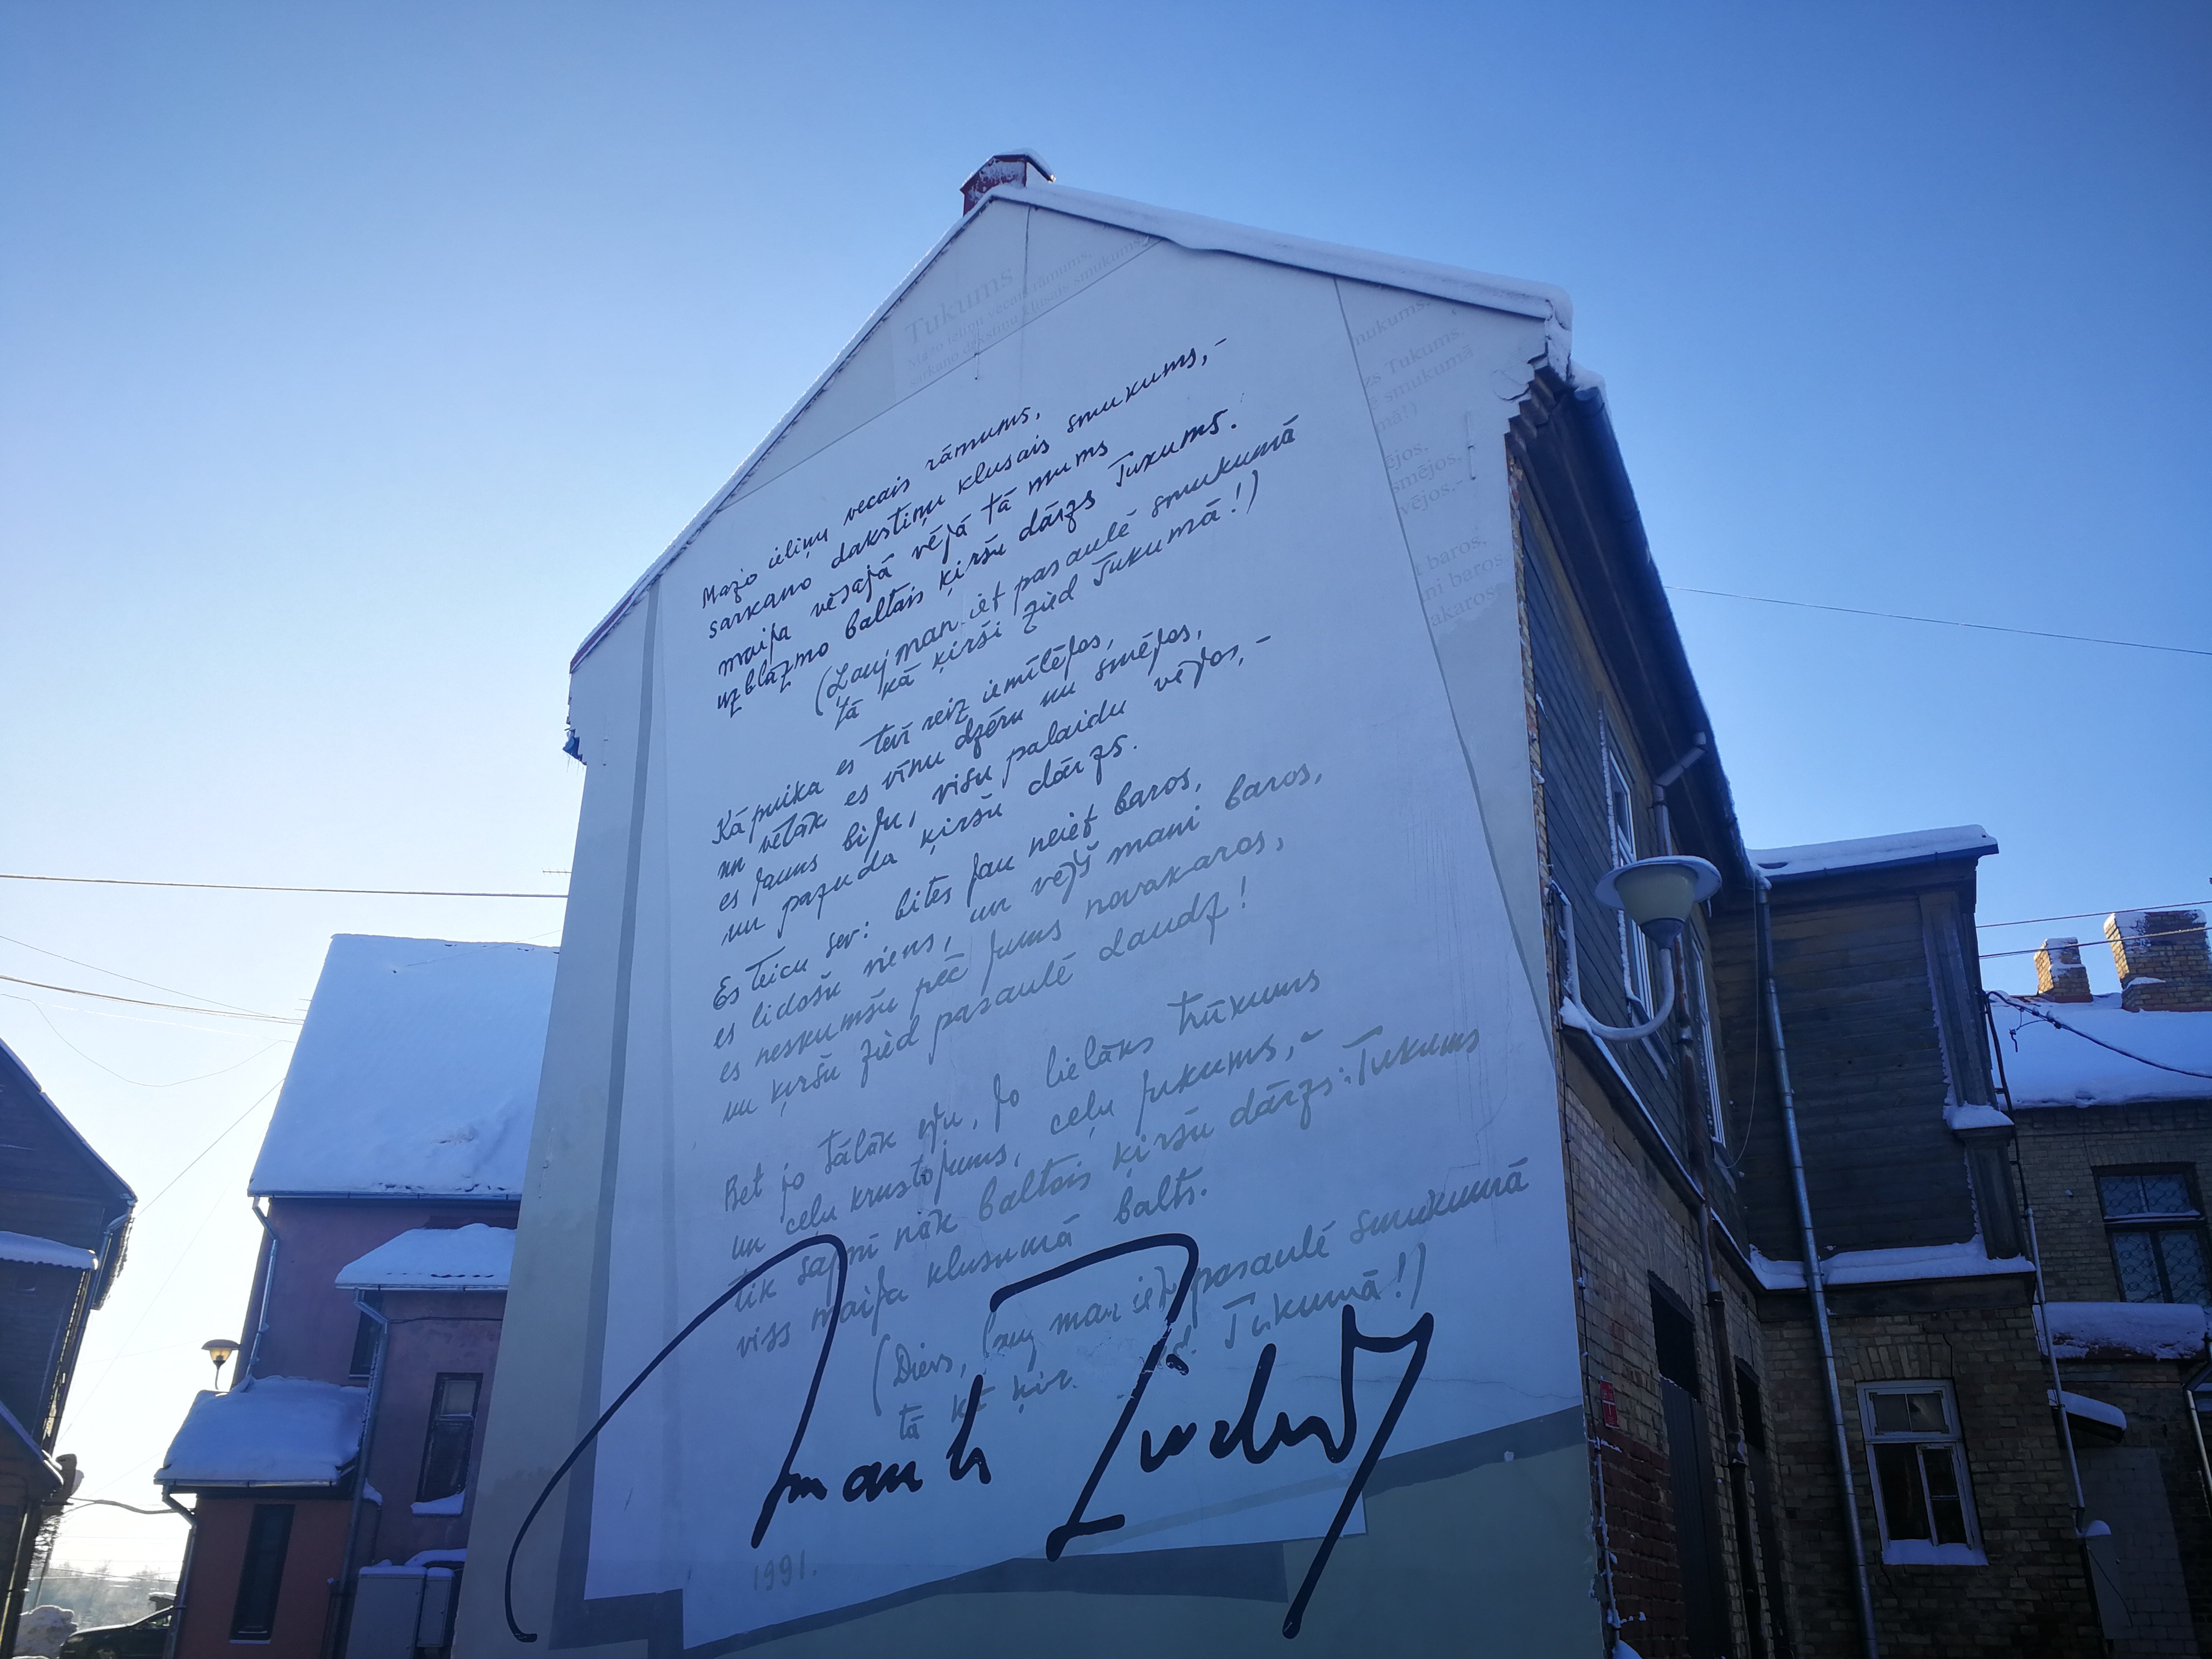 Tukums
Mazo ieliņu vecais rāmums,
sarkano dakstiņu klusais smukums,
Mazo ieliņu vecais rāmums,
sarkano dakstiņu klusais smukums,-
maija vēsajā vējā tā mums
uzblāzmo baltais ķiršu dārzs Tukums.
(Ļauj man iet pasaulē smukumā
tā kā ķirši zied Tukumā!)
Kā puika es tevī reiz iemīlējos,
un vēlāk es vīnu dzēru un smējos,
es jauns biju, visu palaidu vējos,-
un pazuda ķiršu dārzs.
Es teicu sev: bites jau neiet baros,
es lidošu viens, un vējš mani baros,
es neskumšu pēc jums novakaros,
nu ķiršu zied pasaulē daudz!
Bet jo tālāk eju, jo lielāks trūkums
un ceļu krustojums, ceļu jukums,-
tik sapnī nāk baltais ķiršu dārzs: Tukums
viss maija klusumā balts.
(Dievs, ļauj man iet pasaulē smukumā
tā kā ķir. Tukumā!)
Imants Ziedonis
1991.
mukums,
zs Tukums.
ē smukumā
mā!)
ējos,
smējos,
vējos,-
baros,
ni baros,
akaros,